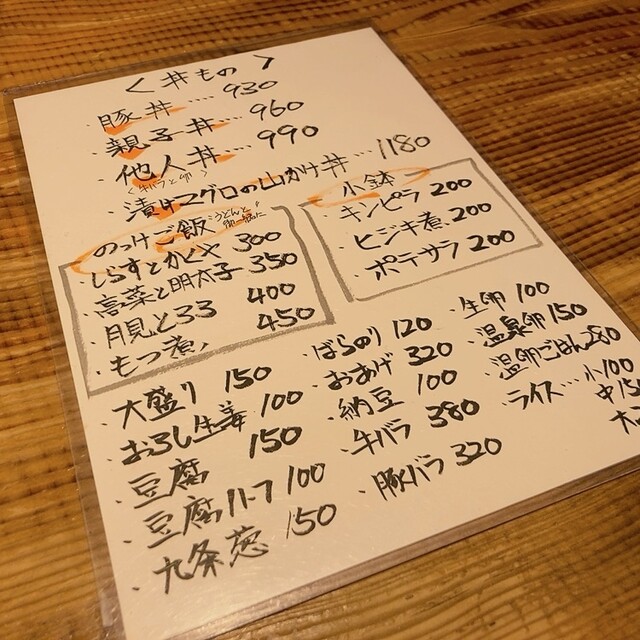 〈 丼もの 〉
・豚丼・・・930
・親子丼・・・960
・他人丼・・・990
牛バラと卵
・漬けマグロの山かけ丼・・・1180
のっけご飯
うどんと
・しらすとカヒヤ 300
・高菜と明太子 350
・月見とろろ 400
・もつ煮 450
小鉢
・キンピラ 200
・ヒジキ煮 200
・ポテサラ 200
・大盛り 150
・おろし生姜 100
・豆腐 150
・豆腐ハーフ 100
・九条葱 150
・ばらのり 120
・おあげ 320
・納豆 100
・牛バラ 380
・豚バラ 320
・生卵 100
・温泉卵 150
・温卵ごはん 280
・ライス・・・小100
中15
大